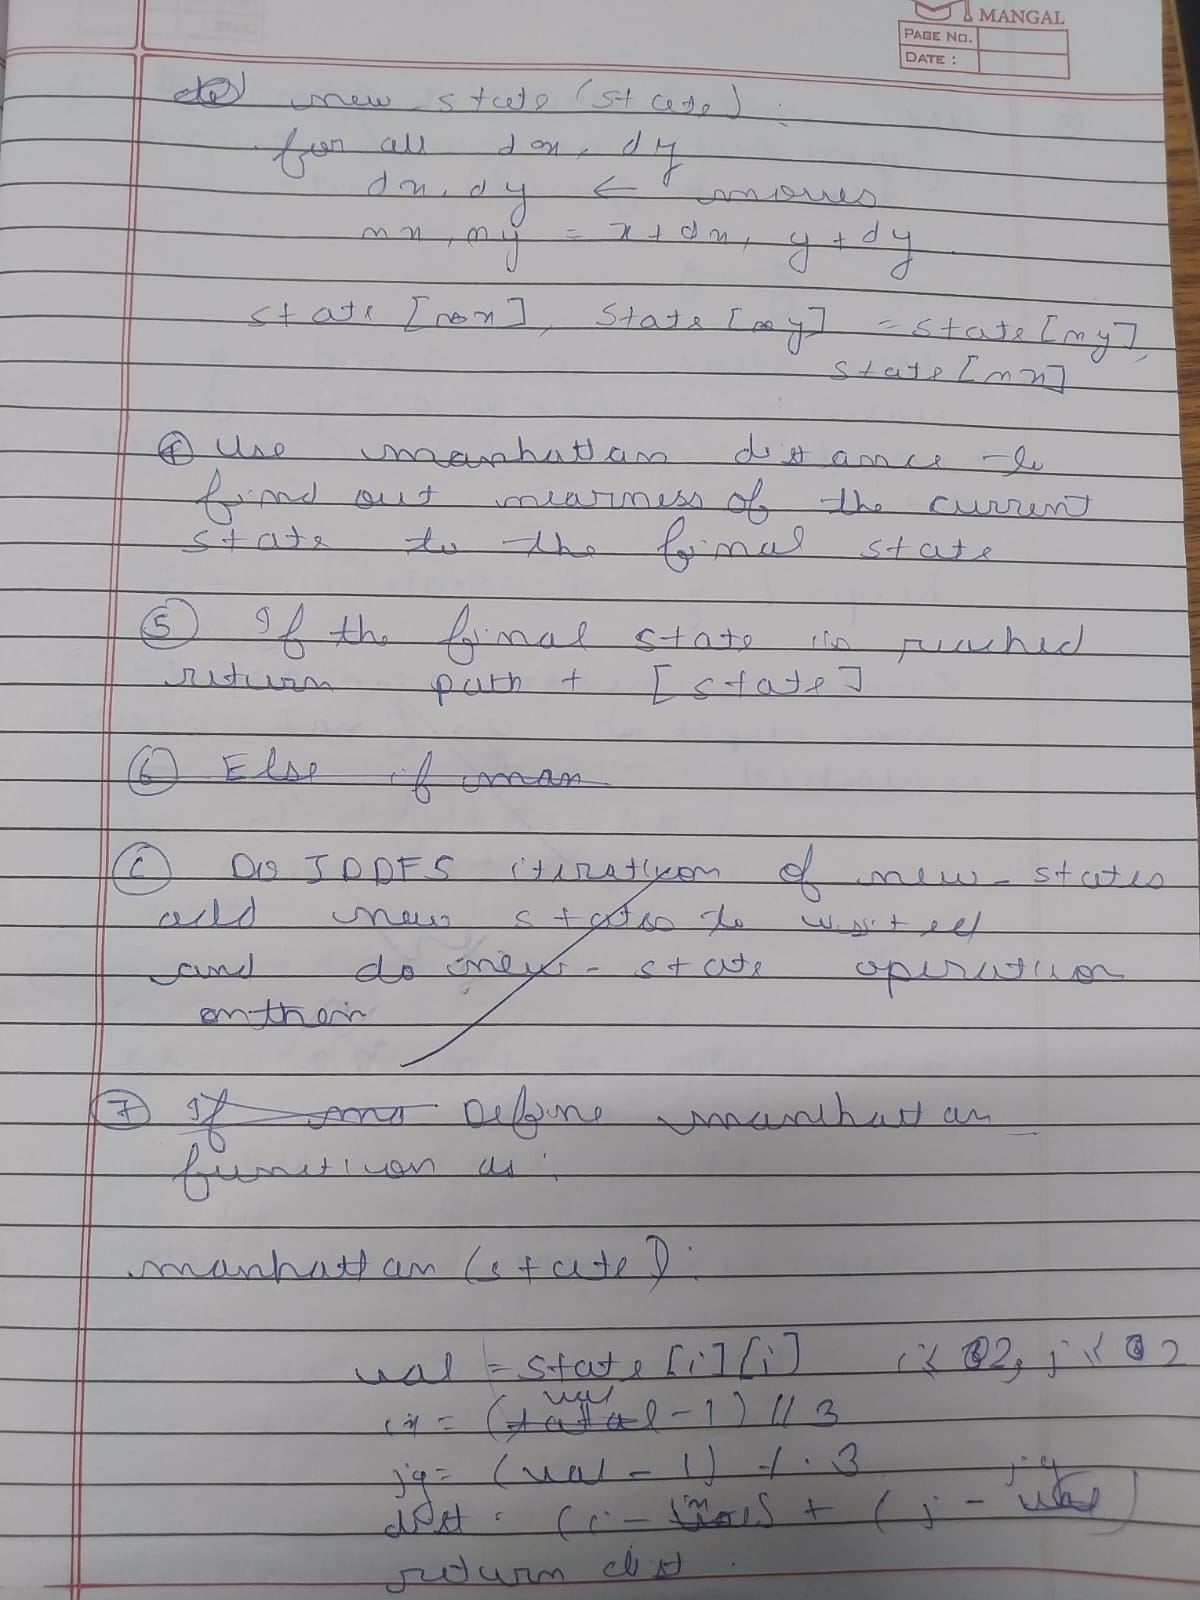 MANGAL
PAGE NO.
DATE :
new-state (state) :
for all dx, dy
dx, dy ← moves
nx, ny = x + dx, y + dy
state [nx], state [ny] = state [ny],
state [nx]
④ Use manhattan distance to
find out nearness of the current
state to the final state
⑤ If the final state is reached
return path + [state]
⑥ Else if man
⑥ Do IDDFS iteration of new-states
add new states to visited
and do new-state operation
on them
⑦ If not Define manhattan
function as :
manhattan (state) :
val = state [i] [j] i< 2, j< 2
ix = (val - 1) // 3
jy = (val - 1) % 3
dist = (i - ix) + (j - jy)
return dist.